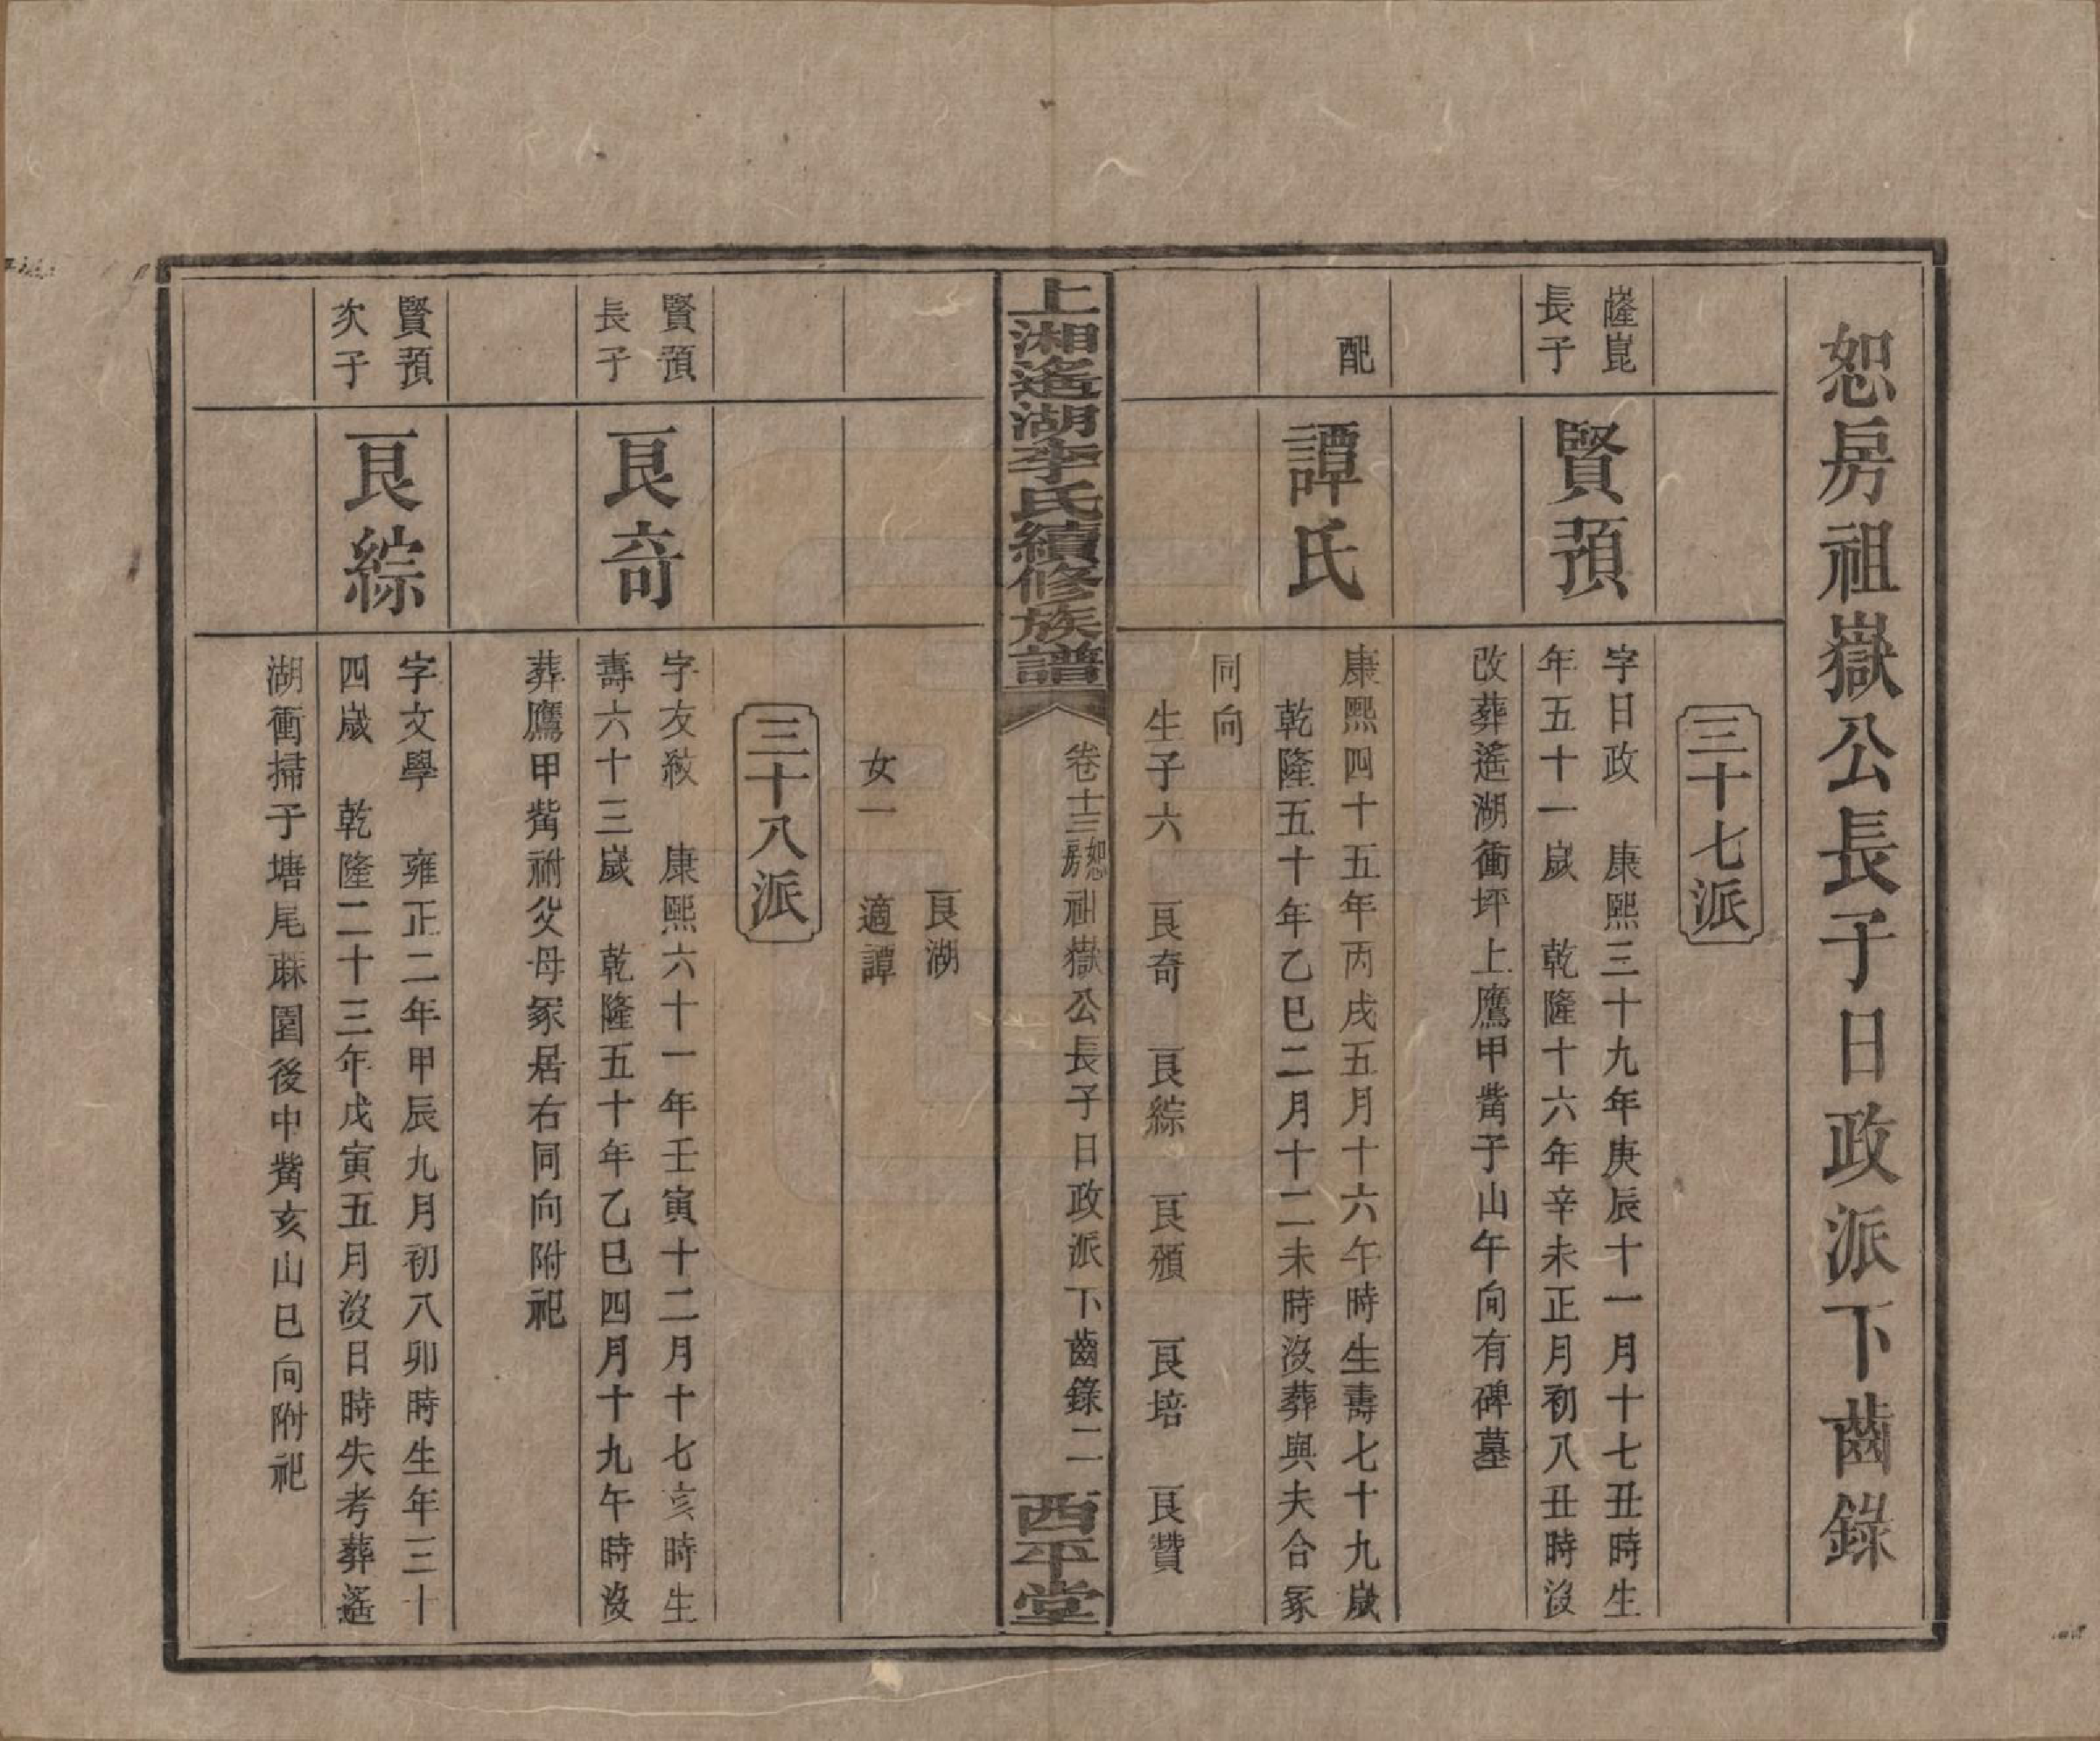 恕房祖嶽公長子日政派下齒錄
三十七派
隆崑
長子
賢預
字日政　康熙三十九年庚辰十一月十七丑時生
年五十一歲　乾隆十六年辛未正月初八丑時沒
改葬遙湖衝坪上鷹甲觜子山午向有碑墓
配
譚氏
康熙四十五年丙戌五月十六午時生壽七十九歲
乾隆五十年乙巳二月十二未時沒葬與夫合冢
同向
生子六　艮奇　艮綜　艮頒　艮培　艮贊
上湘遙湖李氏續修族譜
卷十三恕房祖嶽公長子日政派下齒錄二
西平堂
艮湖
女一　適譚
三十八派
賢預
長子
艮奇
字友紋　康熙六十一年壬寅十二月十七亥時生
壽六十三歲　乾隆五十年乙巳四月十九午時沒
葬鷹甲觜祔父母冢居右同向附祀
賢預
次子
艮綜
字文學　雍正二年甲辰九月初八卯時生年三十
四歲　乾隆二十三年戊寅五月沒日時失考葬遙
湖衝掃子塘尾蔴園後中觜亥山巳向附祀